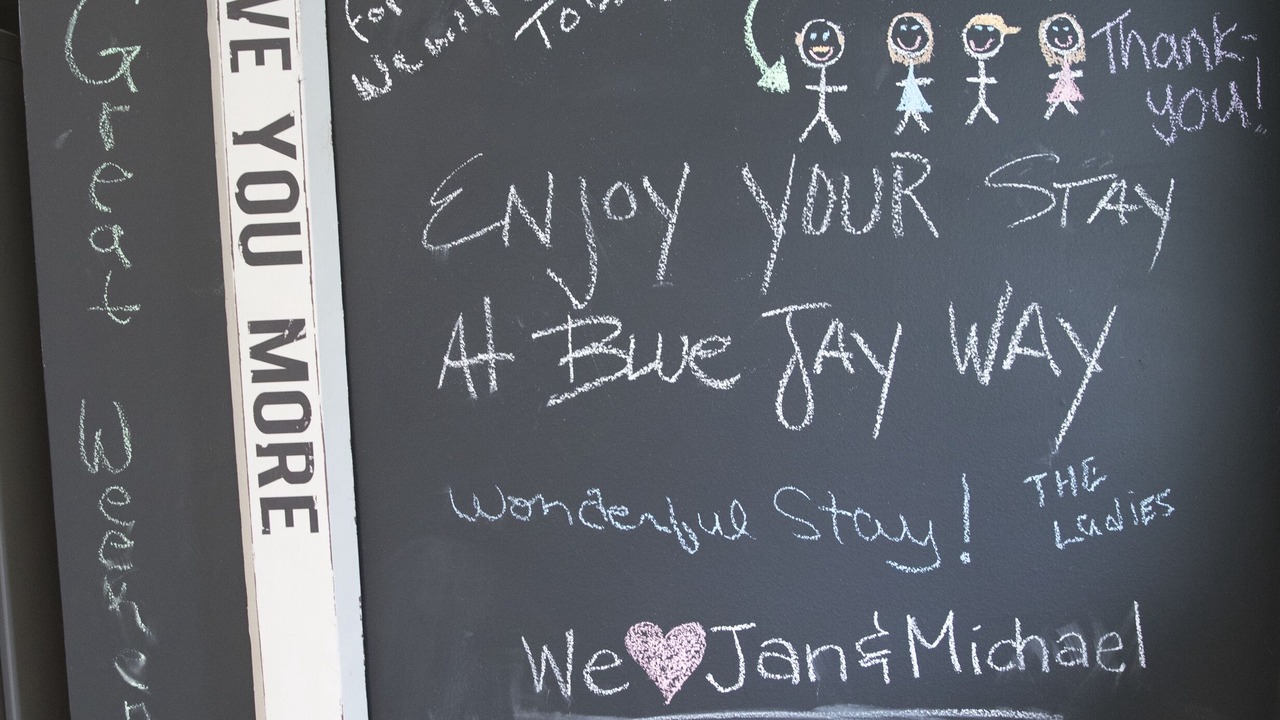 Great
VE YOU MORE
for
We will
To
Thank-
you!
ENJOY YOUR STAY
At BLUE JAY WAY
Wonderful Stay!
THE
LadiES
We Jan & Michael